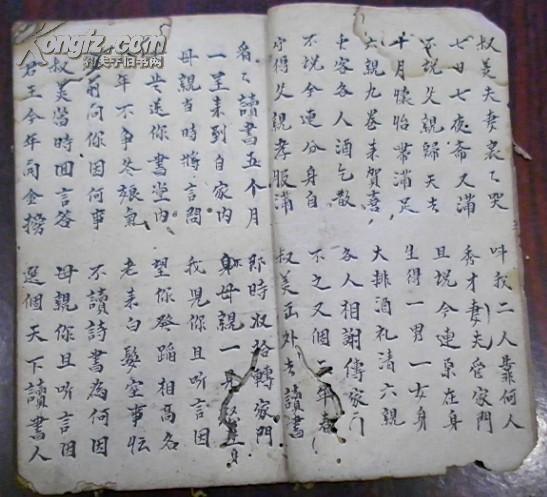 Kongfz.com
孔夫子旧书网
叔美夫妻哀々哭 叫我二人靠何人
七日七夜斋又滿 秀才妻夫管家門
不説父親歸天去 且説令連原在身
十月懷怡帶滿足 生得一男一女身
六親九眷来賀喜 大排酒礼清六親
客各人酒乞散 各人相謝傳家门
不说令連分身自 不之又個二年春
守得父親孝服滿 叔美出外去讀書
看々讀書五个月 即時收拾轉家門
一呈来到自家内 身母親一身
母親当時將言問 我見你且听言因
送你書堂内 望你發蹈相高名
年不争冬娘氣 老来白髮空事
问你因何事 不讀詩書為何因
叔美當時回言答 母親你且听言因
君王今年向金榜 選個天下讀書人